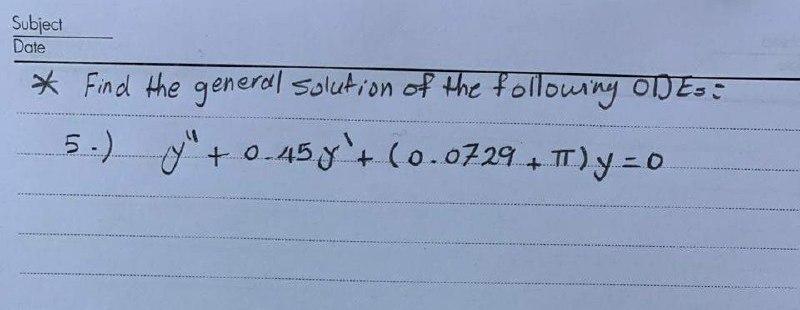 Subject
Date
* Find the general solution of the following ODEs:
5.) y" + 0.45y' + (0.0729 + π)y = 0